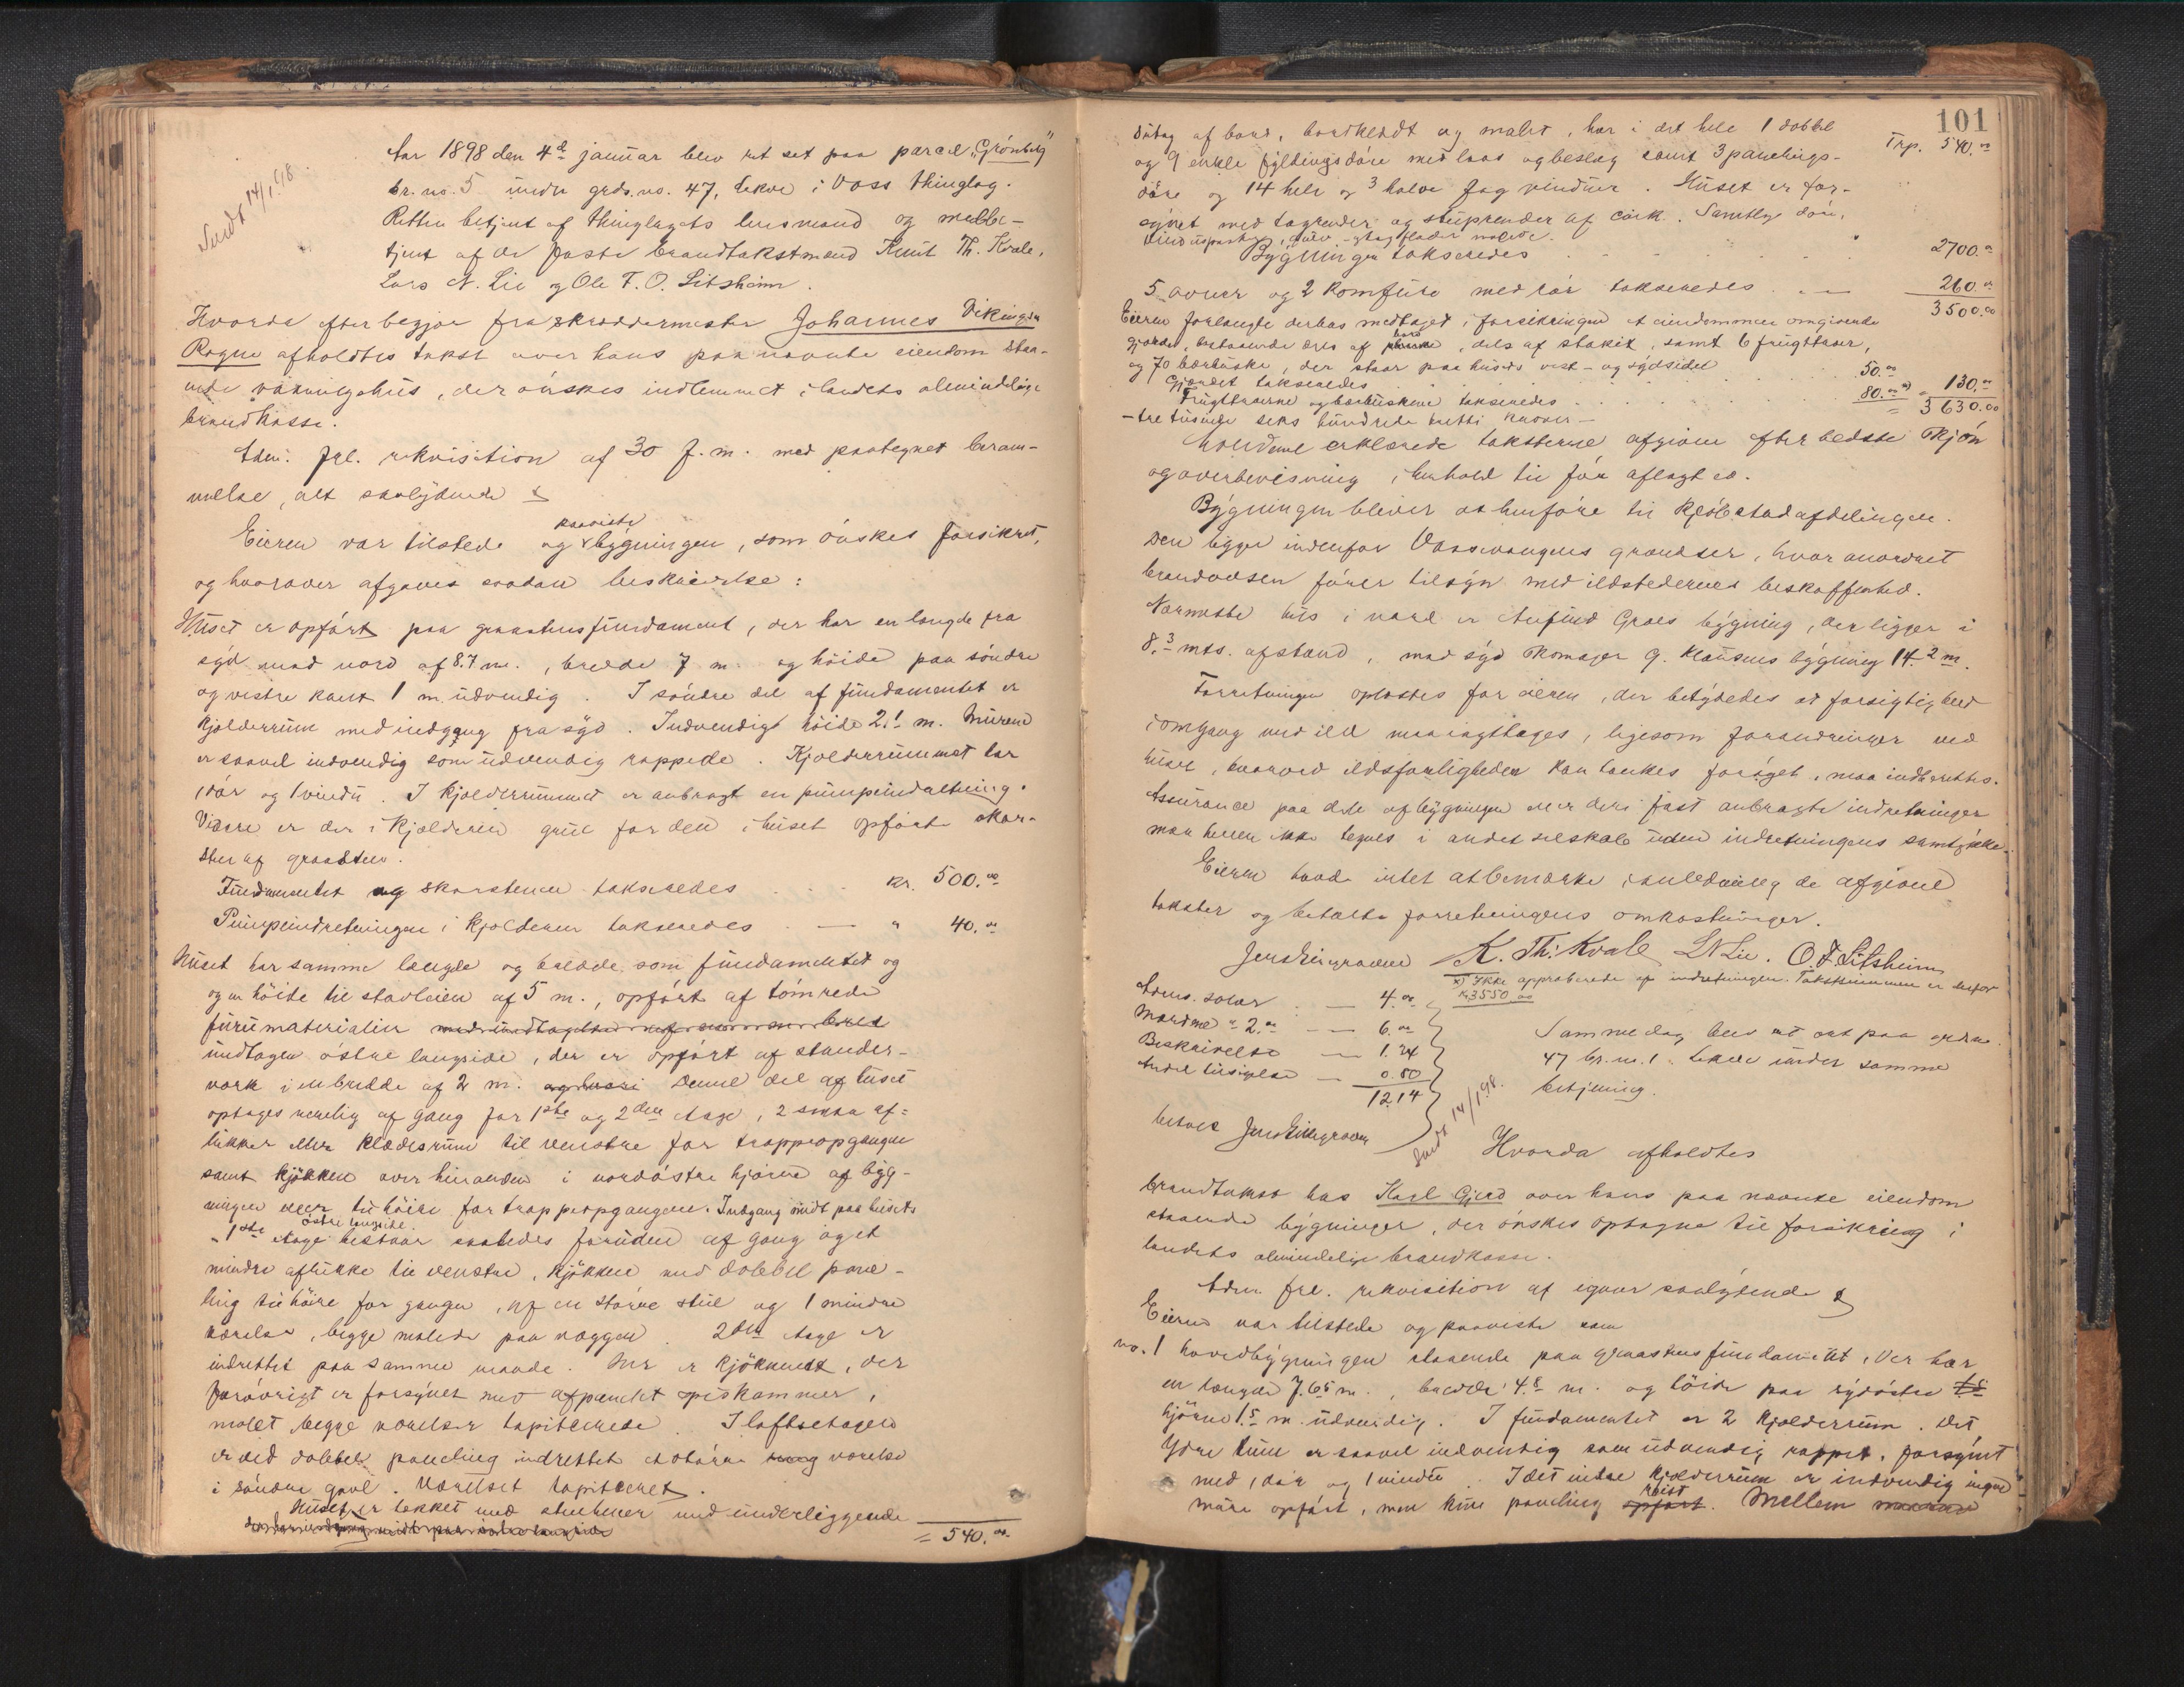 Sendt 14/1 98.
Aar 1898 den 4de januar blev ret sat paa parcel „Grönberg"
br. no. 5 under grds. no. 47, Lekve i Voss thinglag.
Retten betjent af thinglagets lensmand og medbe-
tjent af de faste brandtakstmænd Knut Th. Kvale,
Lars N. Lie og Ole F. O. Litsheim.
Hvorda efter begjær fra skræddermester Johannes Vikingsen
Rogne afholdtes takst over hans paa nævnte eiendom staa-
ende vaaningshus, der önskes indlemmet i landets almindelige
brandkasse.
Adm. frl. rekvisition af 30 f. m. med paategnet beram-
melse, alt saalydende
Eieren var tilstede og paaviste bygningen, som önskes forsikret,
og hvorover afgaves saadan beskrivelse:
Huset er opfört paa graastensfundament, der har en længde fra
syd mod nord af 8.7 m., bredde 7 m. og höide paa söndre
og vestre kant 1 m. udvendig. I söndre del af fundamentet er
kjælderrum med indgang fra syd. Indvendig höide 2.1 m. Murene
er saavel indvendig som udvendig rappede. Kjælderrummet har
1 dör og 1 vindu. I kjælderrummet er anbragt en pumpeindretning.
Videre er der i kjælderen grue for den i huset opförte skor-
sten af graasten.
Fundamentet og skorstenen takseredes . . . kr. 500.00
Pumpeindretningen i kjælderen takseredes . — " 40.00
Huset har samme længde og bredde som fundamentet og
og en höide til stavleien af 5 m., opfört af tömrede
furumaterialier med undtagelse af
undtagen östre langside, der er opfört af stander-
værk i en bredde af 2 m. Denne del af huset
optages nemlig af gang for 1ste og 2den etage, 2 smaa af-
lukker eller klædesrum til venstre for trappeopgangen
samt kjökken over hinanden i nordöstre hjörne af byg-
ningen eller til höire for trappeopgangen. Indgang midt paa husets
östre langside.
1ste etage bestaar saaledes foruden af gang og et
mindre aflukke til venstre, kjökken med dobbel pane-
ling til höire for gangen, af en större stue og 1 mindre
værelse, begge malede paa væggen. 2den etage er
indrettet paa samme maade. Her er kjökkenet, der
forövrigt er forsynet med afpanelet spiskammer,
malet, begge værelser tapitserede. I loftsetagen
er ved dobbel paneling indrettet et större værelse
i söndre gavl. Værelset tapitseret.
Huset er tækket med stenheller med underliggende
= 540.00
101
sutag af bord, bordklædt og malet, har i det hele 1 dobbel Trp. 540.00
og 9 enkle fyldingsdöre med laas og beslag samt 3 panelings-
döre og 14 hele og 3 halve fag vinduer. Huset er for-
synet med tagrender og stuprender af zink. Samtlige döre,
vinduesposter, gulv- og tagflader malede.
Bygningen takseredes . . . . . 2700.00
5 ovner og 2 komfure med rör takseredes . — 260.00
3500.00
Eieren forlangte derhos medtaget i forsikringen et eiendommen omgivende
gjærde, bestaaende dels af bord, dels af stakit, samt 6 frugttræer,
og 70 bærbuske, der staar paa husets vest- og sydside
Gjærdet takseredes . . . . . 50.00
Frugttræerne og bærbuskene takseredes . . . 80.00 x) = 130.00
= 3630.00
— tre tusinde seks hundrede tretti kroner —
Mændene erklærede taksterne afgivne efter bedste skjön
og overbevisning i henhold til för aflagt ed.
Bygningen bliver at henföre til kjöbstadafdelingen.
Den ligger indenfor Vossevangens grændser, hvor anordnet
brandvæsen förer tilsyn med ildstedernes beskaffenhed.
Nærmeste hus i nord er Anfind Graes bygning, der ligger i
8.3 mts. afstand, mod syd skomager G. Klausens bygning 14.2 m.
Forretningen oplæstes for eieren, der betydedes at forsigtighed
i omgang med ild maa iagttages, ligesom forandringer ved
huset, hvorved ildsfarligheden kan tænkes foröget, maa indberettes.
Assurance paa dele af bygningen eller deri fast anbragte indretninger
maa heller ikke tegnes i andet selskab uden indretningens samtykke.
Eieren havde intet at bemærke i anledning de afgivne
takster og betalte forretningens omkostninger.
Jens Lirhus K. Th: Kvale L N Lie. O. F. Litsheim
x) Ikke approberede af indretningen. Takstsummen er derfor
Kr 3550 00
Adms. salær . — 4.00
Mændene à 2.00 — 6.00
Beskrivelse — 1.34
Andel — 0.80
12.14
betalt
Sendt 14/1 98.
Samme dag blev ret sat paa grdsn.
47 br. no. 1. Lekve under samme
betjening.
Hvorda afholdtes
brandtakst hos Karl Gjerd over hans paa nævnte eiendom
staaende bygninger, der önskes optagne til forsikring i
landets almindelige brandkasse.
Adm. frl. rekvisition af igaar saalydende
Eieren var tilstede og paaviste som
no. 1 hovedbygningen staaende paa graastensfundament, der har
en længde 7.65 m., bredde 4.8 m. og höide paa sydöstre
hjörne 1.5 m. udvendig. I fundamentet er 2 kjælderrum. Det
ydre rum er saavel indvendig som udvendig rappet, forsynet
med 1 dör og 1 vindu. I det indre kjælderrum er indvendig ingen
mure opfört, men kun paneling reist. Mellem